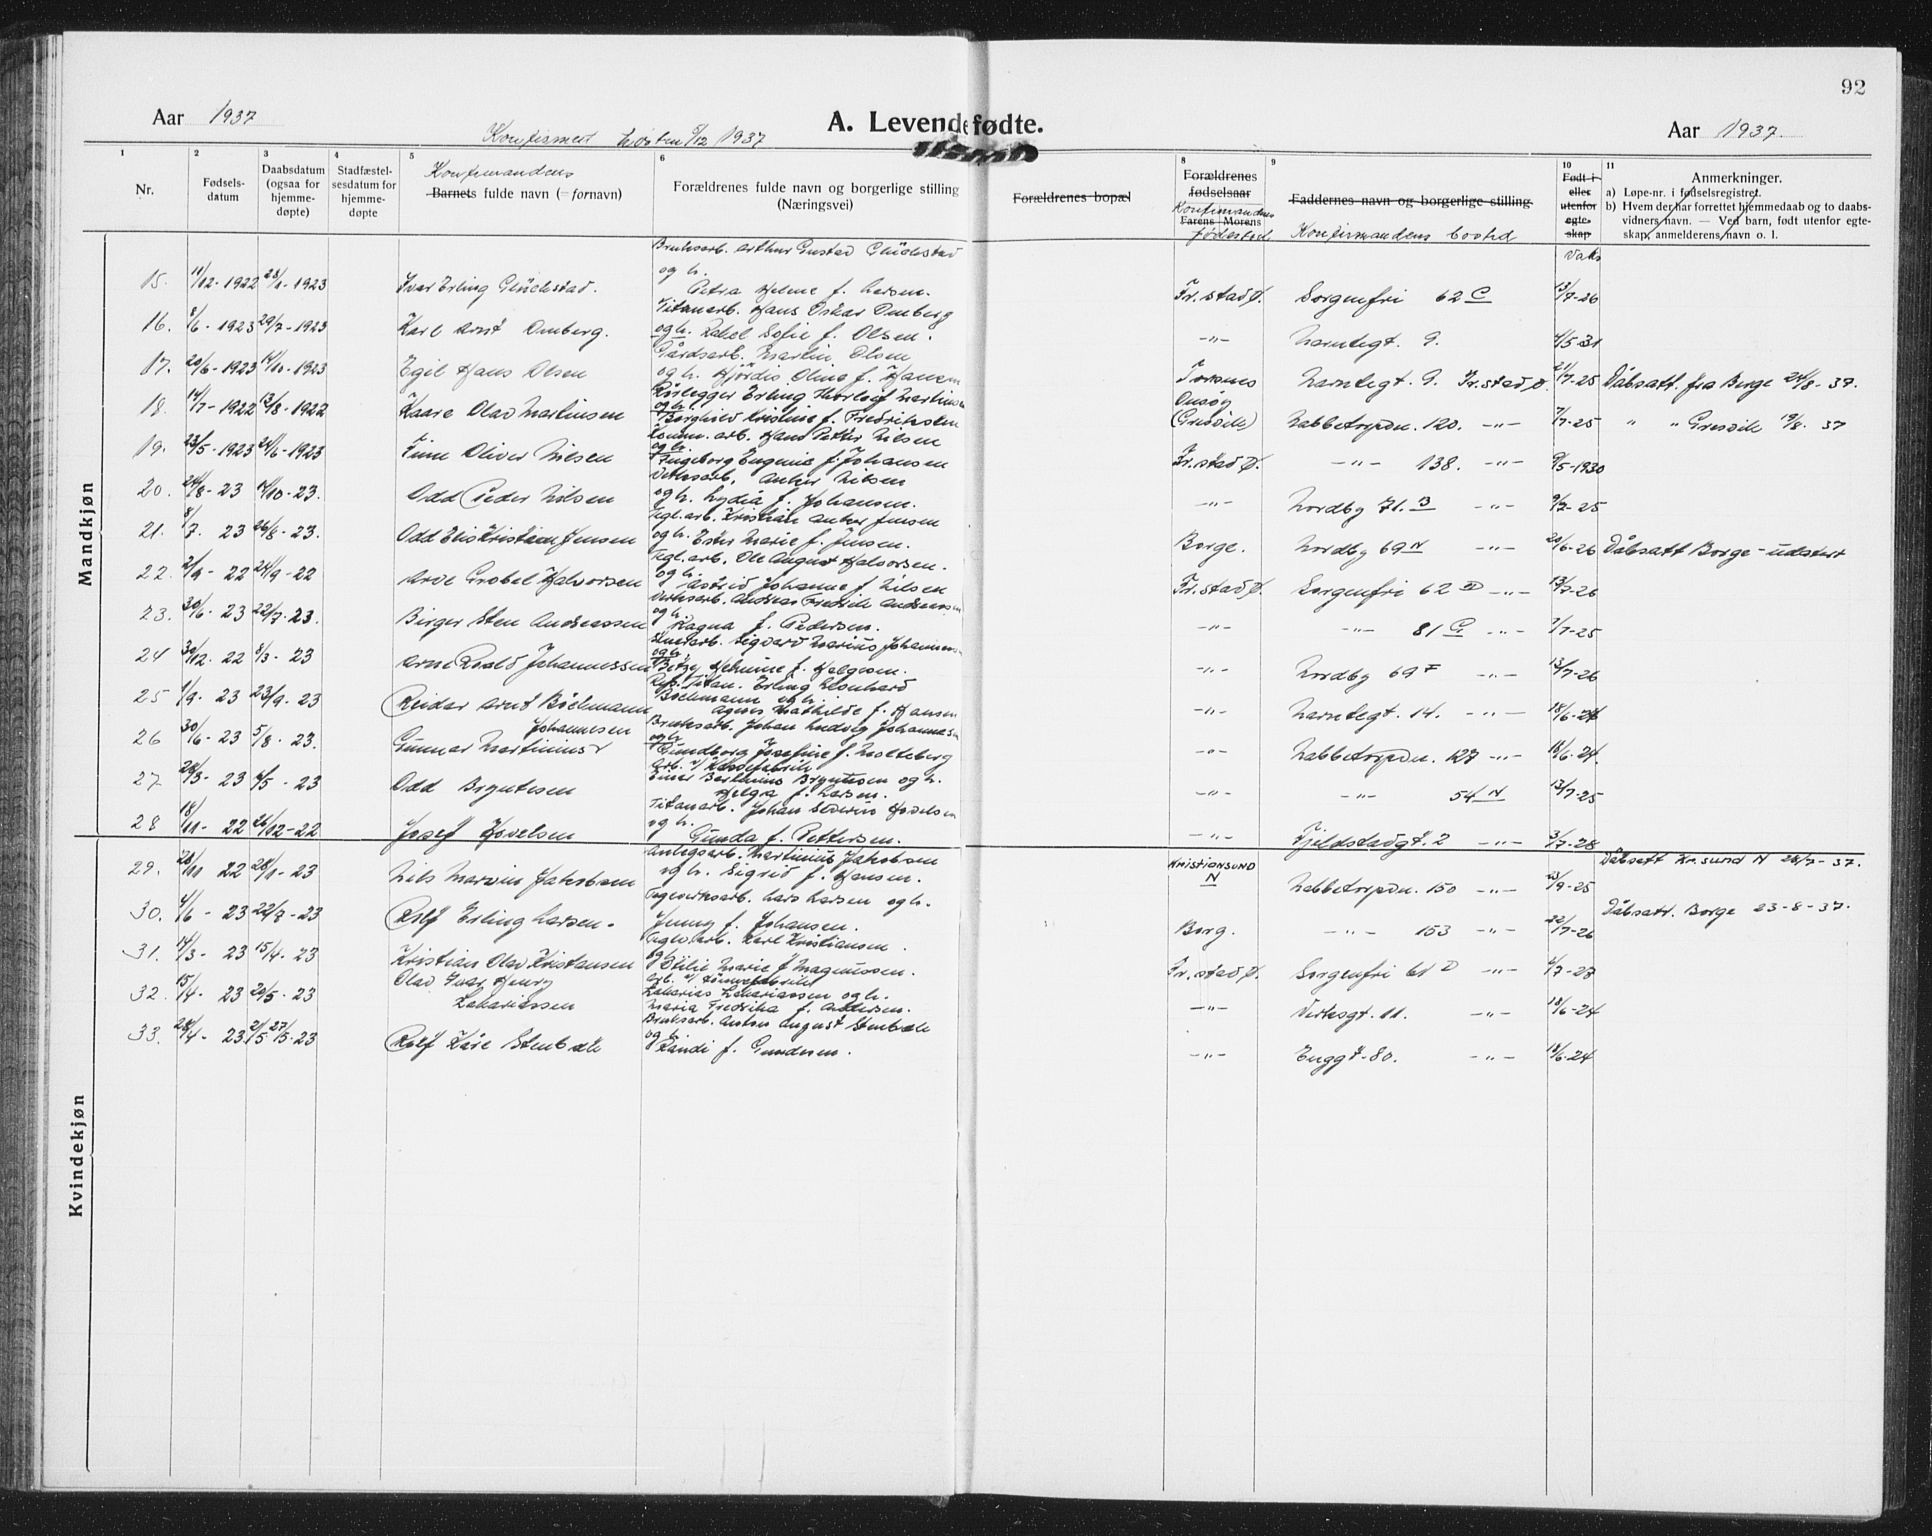 92
Aar 1937
A. Levendefødte.
Aar 1937.
Konfirmert høsten 5/12 1937
1 2 3 4 5 6 8 9 10 11
Nr.
Fødsels-
datum
Daabsdatum
(ogsaa for
hjemme-
døpte)
Stadfæstel-
sesdatum for
hjemme-
døpte
Konfirmandens
Barnets fulde navn (= fornavn)
Forældrenes fulde navn og borgerlige stilling
(Næringsvei)
Forældrenes bopæl
Forældrenes
fødselsaar
Konfirmandens
Farens Morens
fødested
Faddernes navn og borgerlige stilling
Konfirmandens bosted
Født i
eller
utenfor
egte-
skap
Vaks
Anmerkninger.
a) Løpe-nr. i fødselsregistret.
b) Hvem der har forrettet hjemmedaab og to daabs-
vidners navn. — Ved barn, født utenfor egte-
skap, anmelderens navn o. l.
Mandkjøn
Bruksarb. Arthur Gustav Glückstad
og h.
15. 11/12-1922 28/1-1923 Ivar Erling Glückstad. Petra Helene f. Larsen. Fr.stad Ø. Sorgenfri 62 C 13/7-26
Titanarb. Hans Oskar Omberg
16. 8/6-1923 29/7-1923 Karl Arnt Omberg. og h. Rakel Sofie f. Olsen. -"- Narntegt. 9. 4/5-31
Gårdsarb. Martin Olsen
17. 20/6-1923 14/10-1923 Egil Hans Olsen og h. Hjördis Oline f. Hansen Torsnes Narntegt. 9. Fr.stad Ø. 21/7-25 Dåbsatt. fra Borge 24/8-37.
Rörlegger Erling Thorleif Martinsen
18. 14/7-1922 13/8-1922 Kaare Olav Martinsen og h. Borghild Kristine f. Fredriksen Onsöy (Gresvik) Nabbetorpvn. 120. -"- 7/7-25 " " Gresvik 19/8-37
Komm. arb. Hans Petter Nilsen
19. 23/5-1923 24/6-1923 Finn Oliver Nilsen og h. Ingeborg Eugenie f. Johansen Fr.stad Ø. -"- 138. -"- 9/5-1930
Verksarb. Anker Nilsen
20. 24/8-23 14/10-23. Odd Peder Nilsen og h. Lydia f. Johansen. -"- Nordby 71. B -"- 9/7-25
Tegl.arb. Kristian Anker Jensen
21. 8/7. 23 26/8-23. Odd Elis Kristian Jensen og h. Ester Marie f. Jensen. Borge. Nordby 69 N -"- 20/6-26 Dåbsatt Borge - udatert
Tegl.arb. Ole August Halvorsen.
22. 2/9-22 24/9-22 Arve Grobel Halvorsen og h. Astrid Johanne f. Nilsen Fr.stad Ø. Sorgenfri 62 D -"- 13/7-26
Verksarb. Andreas Fredrik Andreassen
23. 30/6-23 22/7-23. Birger Sten Andreassen og h. Ragna f. Pedersen. -"- -"- 81 G -"- 7/7-25
Sigvard Marius Johannessen
24 30/12. 22 8/3-23 Arne Roald Johannessen og h. Betzy Helmine f. Helgesen. -"- Nordby 69 F -"- 13/7-26
Rep. Titan. Erling Leonhard
25 1/9. 23 23/9. 23 Reidar Arnt Böckmann Böckmann og h. Agnes Mathilde f. Hansen -"- Narntegt. 14. -"- 18/6-24
Bruksarb. Johan Ludvig Johannesen
26 30/6-23 5/8. 23. Gunnar Martinius Johannesen og h. Gundborg Josefine f. Molteberg -"- Nabbetorpvn. 127 -"- 18/6-24.
Einar Berthinius Bryntesen og h.
27 28/3-23 4/5-23 Odd Bryntesen Helga f. Larsen. -"- -"- 54 N 13/7-25
Titanarb. Johan Severin Hovelsen
28 18/11-22 26/12-22 Josef Hovelsen og h. Gunda f. Pettersen. -"- Fjeldstadgt. 2 -"- 3/7-28
Kvindekjøn
Anlegsarb. Martinius Jakobsen
29. 28/11 22 28/1-23 Nils Marius Jakobsen og h. Sigrid f. Hansen. Kristiansund N Nabbetorpvn. 150 -"- 23/9-25 Dåbsatt Kr.sund N 28/7-37.
Teglverksarb. Lars Larsen og h.
30. 4/6-23 22/7-23 Rolf Erling Larsen. Jenny f. Johansen. Borg. -"- 153 -"- 22/7-26 Dåbsatt. Borge 23-8-37.
Teglv.arb. Karl Kristiansen.
31. 14/3-23 15/4-23 Kristian Olav Kristiansen og h. Otilie Marie f. Magnussen. Fr.stad Ø. Sorgenfri 61 D -"- 4/7-27
32. 15/4-23 20/5-23 Olav Ivar Henry Zakariassen Zakarias Zakariassen og h. Maria Fredrika f. Andersen. -"- Verksgt. 11. -"- 18/6-24
Bruksarb. Anton August Stenbæk
33. 28/4-23. 21/5 27/5-23 Rolf Kåre Stenbæk og h. Randi f. Gundersen. -"- Enggt. 80. -"- 18/6-24